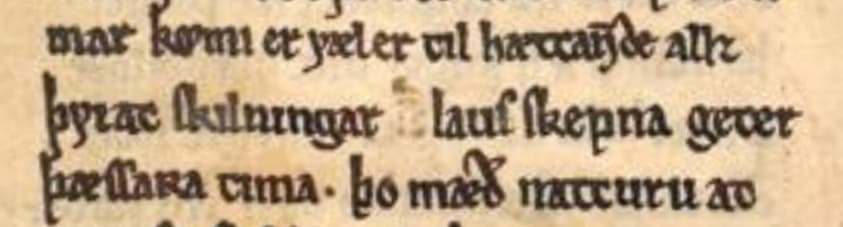 mar komi er væl er til hættande allz
þyrac skilningar lauſ ſkepna geter
þæſſara tima· þo mæð nattcuru at